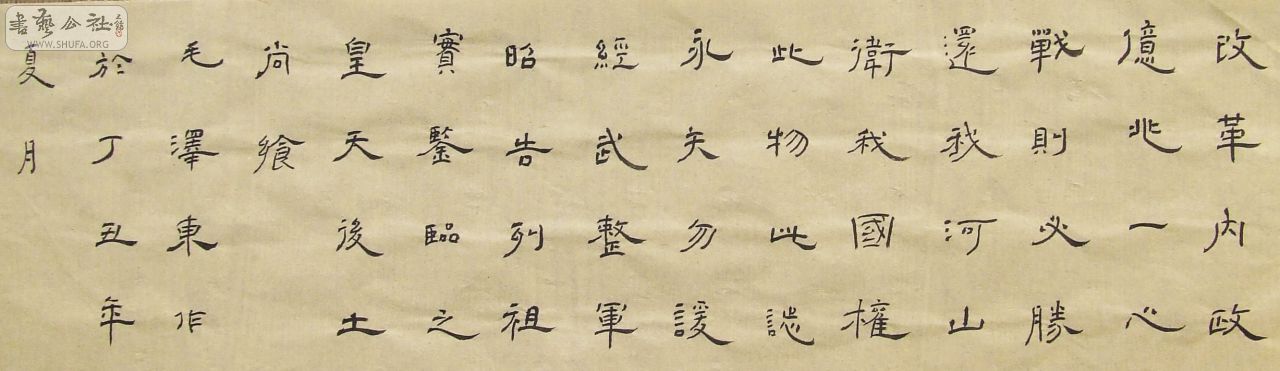 書藝公社
WWW.SHUFA.ORG
改革内政
億兆一心
戰則必勝
還我河山
衛我國權
此物此誌
永矢勿諼
經武整軍
昭告列祖
實鑒臨之
皇天後土
尚飨
毛澤東作
於丁丑年
夏月